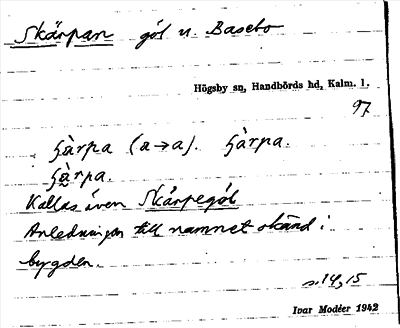 Skärpan göl n. Basebo
Högsby sn, Handbörds hd, Kalm. l.
97
ʃàrpa (a→a). ʃàrpa.
ʃàrpa.
Kallas även Skärpegöl
Anledningen till namnet okänd i
bygden.
s. 14, 15
Ivar Modéer 1942